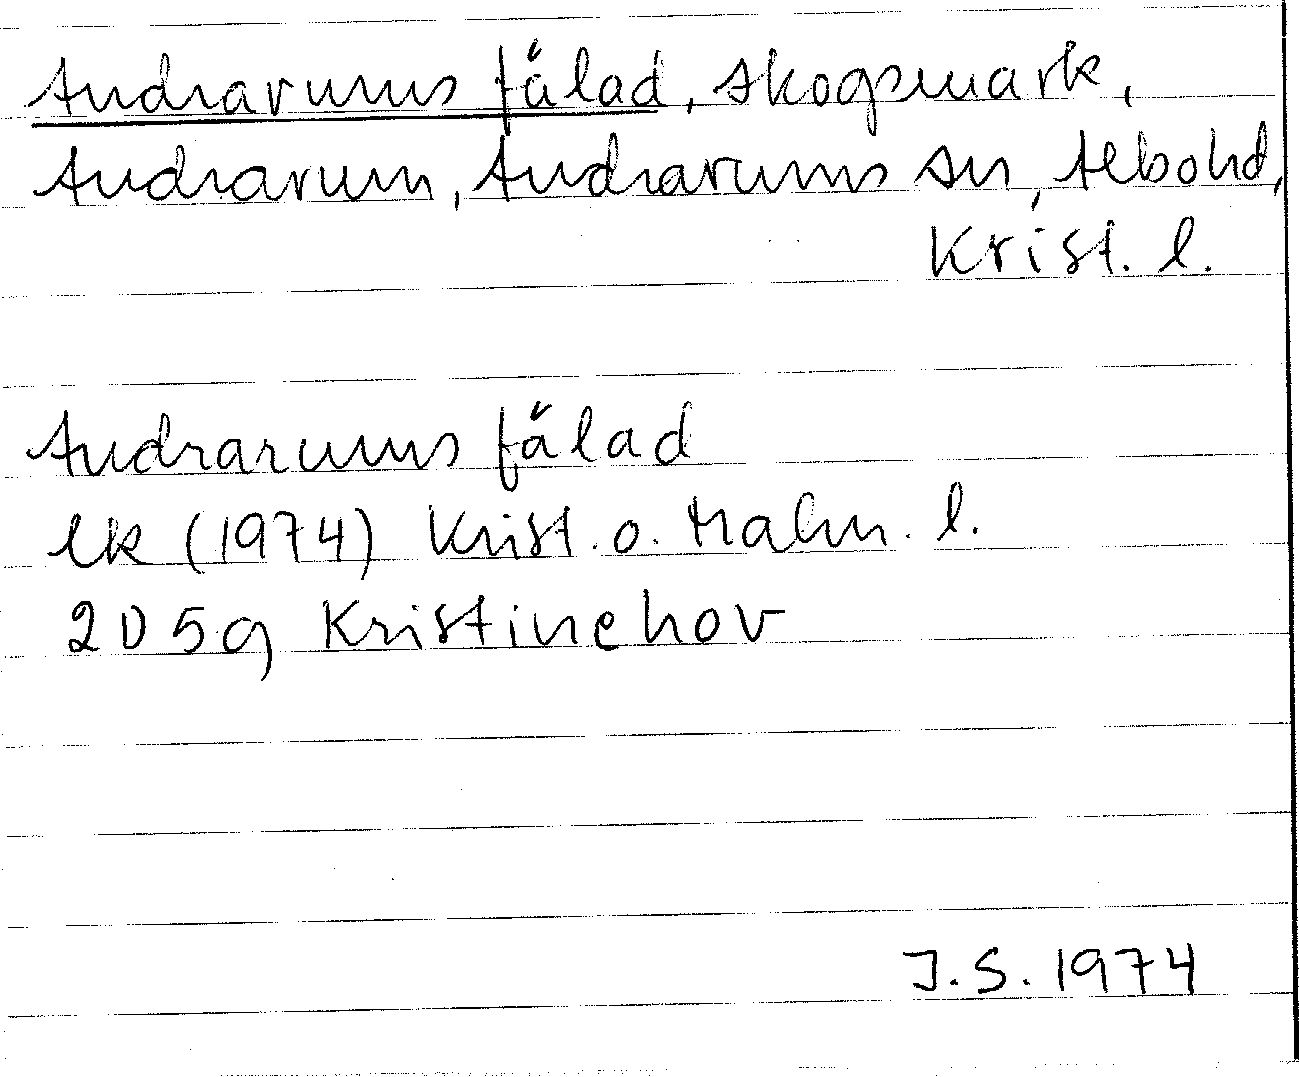 Andrarums fälad, skogsmark,
Andrarum, Andrarums sn, Albohd,
Krist. l.
Andrarums fälad
ek (1974) Krist. o. Malm. l.
2D5g Kristinehov
J.S. 1974